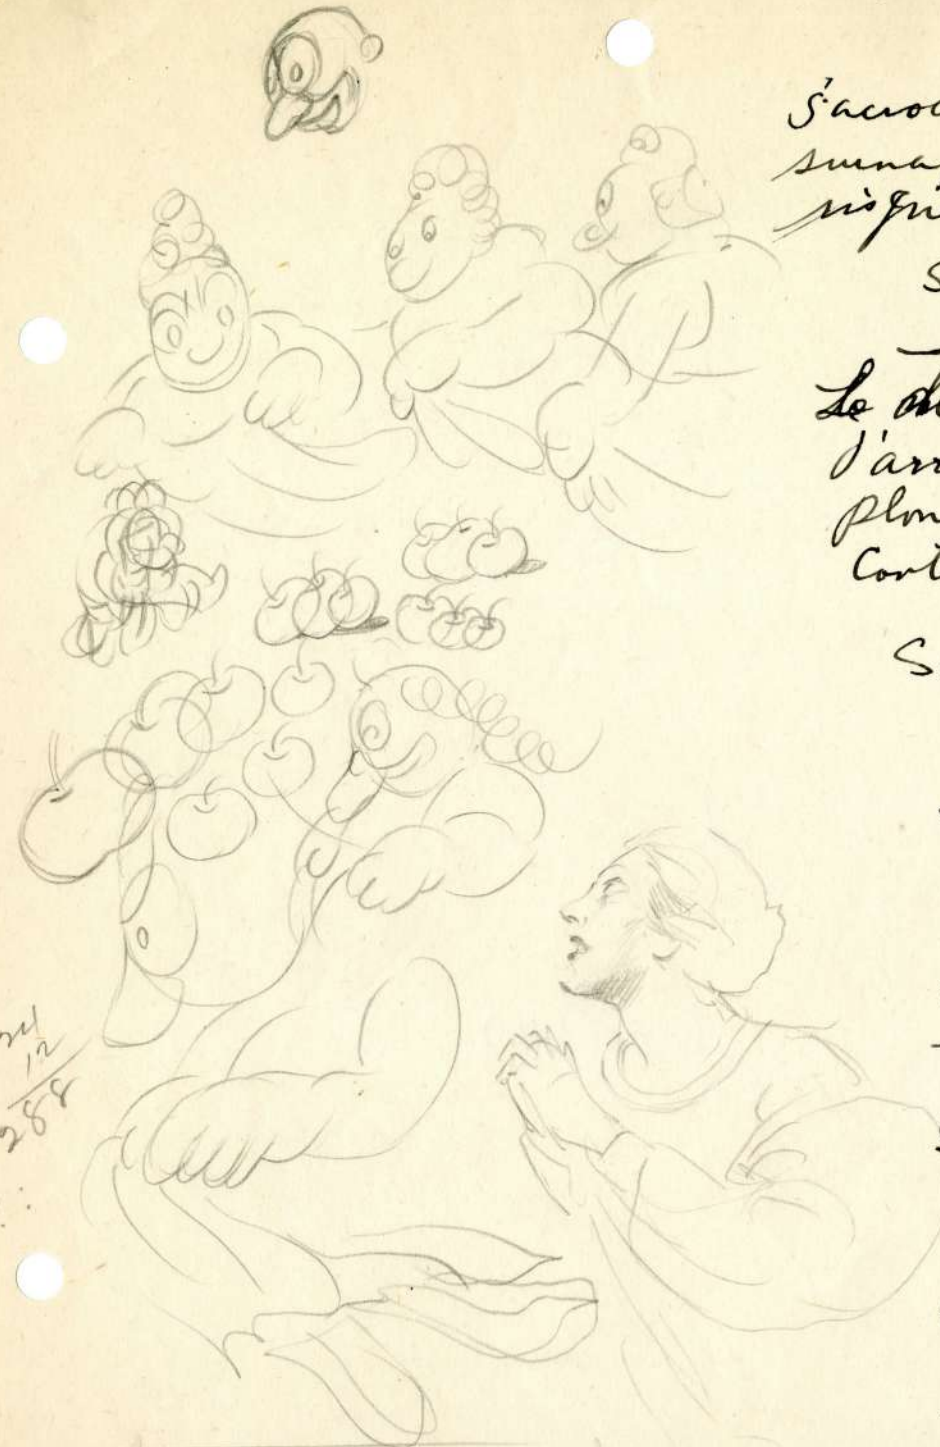 s'acroc
surna
risqu
S
Le di
d'arr
plon
Cont
S
24
12
288